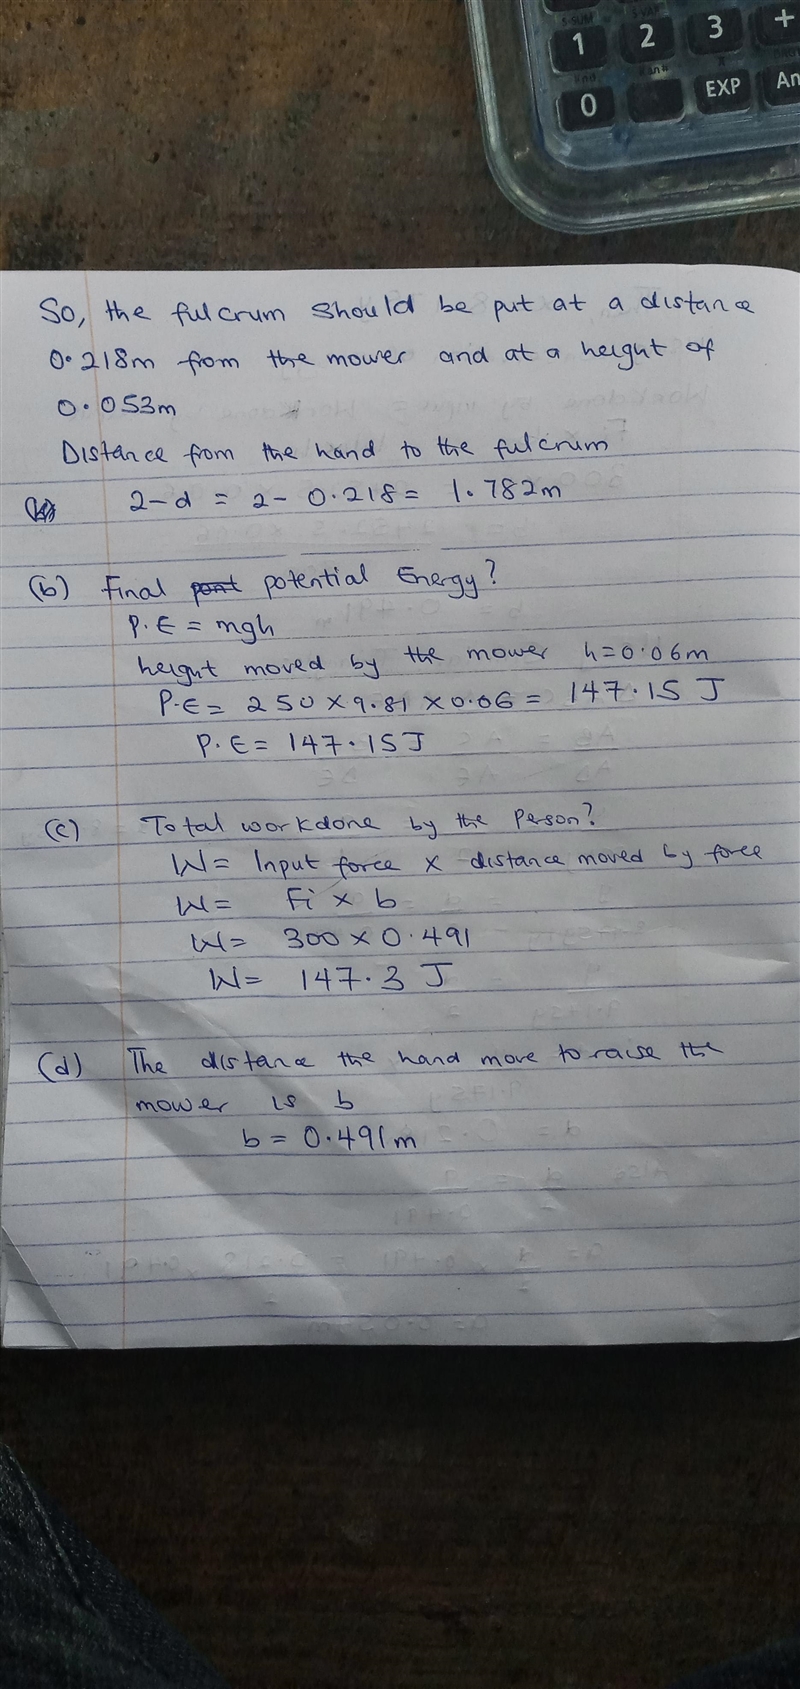 S-SUM S-VAR
1 2 3 +
Rnd Ran# π
0 EXP An
So, the fulcrum should be put at a distance
0.218m from the mower and at a height of
0.053m
Distance from the hand to the fulcrum
2-d = 2- 0.218= 1.782m
(b) Final potential Energy?
P.E = mgh
height moved by the mower h=0.06m
P.E= 250 x 9.81 x 0.06 = 147.15 J
P.E = 147.15J
(c) Total workdone by the person?
W= Input force x distance moved by force
W= Fi x b
W= 300 x 0.491
W= 147.3 J
(d) The distance the hand move to raise the
mower is b
b = 0.491m